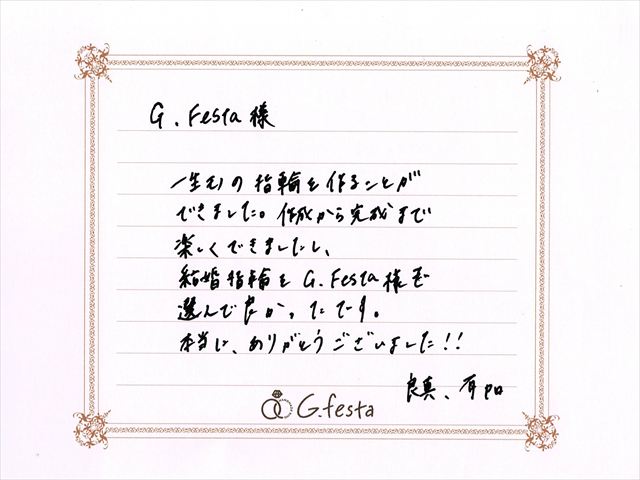 G.Festa様
一生ものの指輪を作ることが
できました。作成から完成まで
楽しくできましたし、
結婚指輪を G.Festa様で
選んで良かったです。
本当に、ありがとうございました!!
良真、
G.festa